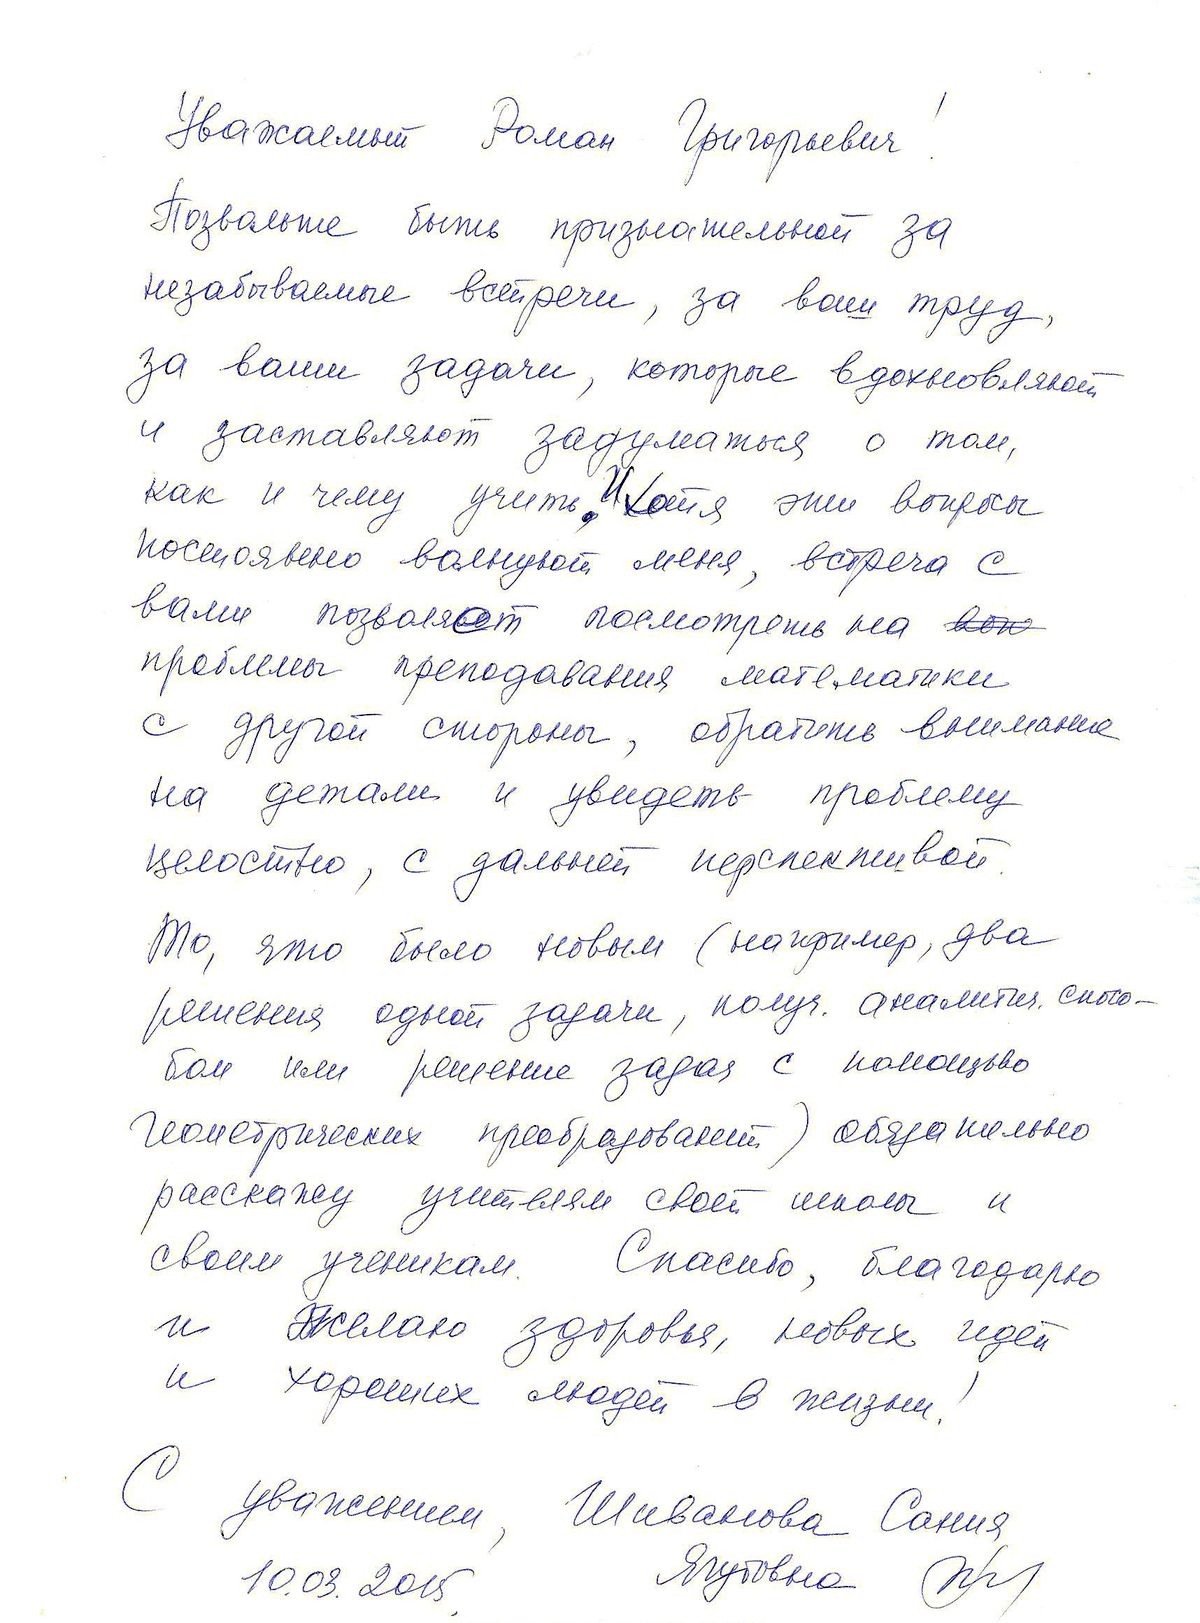 Уважаемый Роман Григорьевич!
Позвольте быть признательной за
незабываемые встречи, за ваш труд,
за ваши задачи, которые вдохновляют
и заставляют задуматься о том,
как и чему учить. И хотя эти вопросы
постоянно волнуют меня, встреча с
вами позволяет посмотреть на
проблемы преподавания математики
с другой стороны, обратить внимание
на детали и увидеть проблему
целостно, с дальней перспективой.
То, что было новым (например, два
решения одной задачи, получ. аналитич. спосо-
бом или решение задач с помощью
геометрических преобразований) обязательно
расскажу учителям своей школы и
своим ученикам. Спасибо, благодарю
и желаю здоровья, новых идей
и хороших людей в жизни!
С уважением, Шиванова Сания
Ягутовна
10.03.2015.